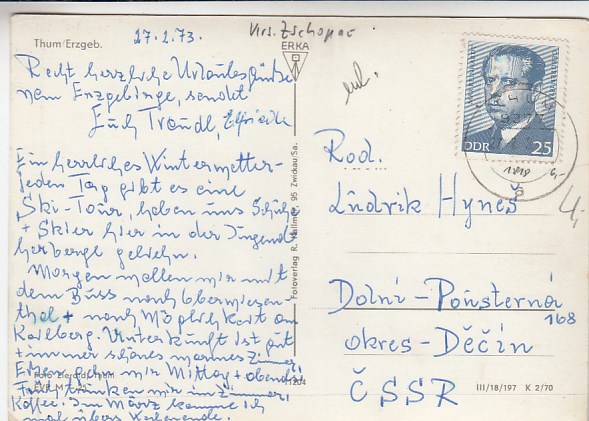 27.2.73.
Krs. Zschopau
Thum/Erzgeb.
ERKA
Recht herzliche Urlaubsgrüße
vom Erzgebirge, sendet
Euch Traudl, Elfriede
Ein herrliches Winterwetter-
jeden Tag gibt es eine
Ski-Tour, haben uns Schuhe
+ Skier hier in der Jugend
herberge geliehn.
Morgen wollen wir mit
dem Buss nach Oberwiesen
thal + nach Möglichkeit am
Keilberg. Unterkunft ist gut
+ immer schönes warmes Zimmer,
Essen gehn wir Mittag + abends,
Früh trinken wir im Zimmer
Kaffee. Im März komme ich
mal übers Wochenende.
Foto Zierold, Thum
1204
Fotoverlag R. Wallmann, 95 Zwickau/Sa.
DDR 25
Rod.
Ludvik Hyneš
Dolni-Poustevna
168
okres-Děčín
ČSSR
III/18/197 K 2/70
4,-